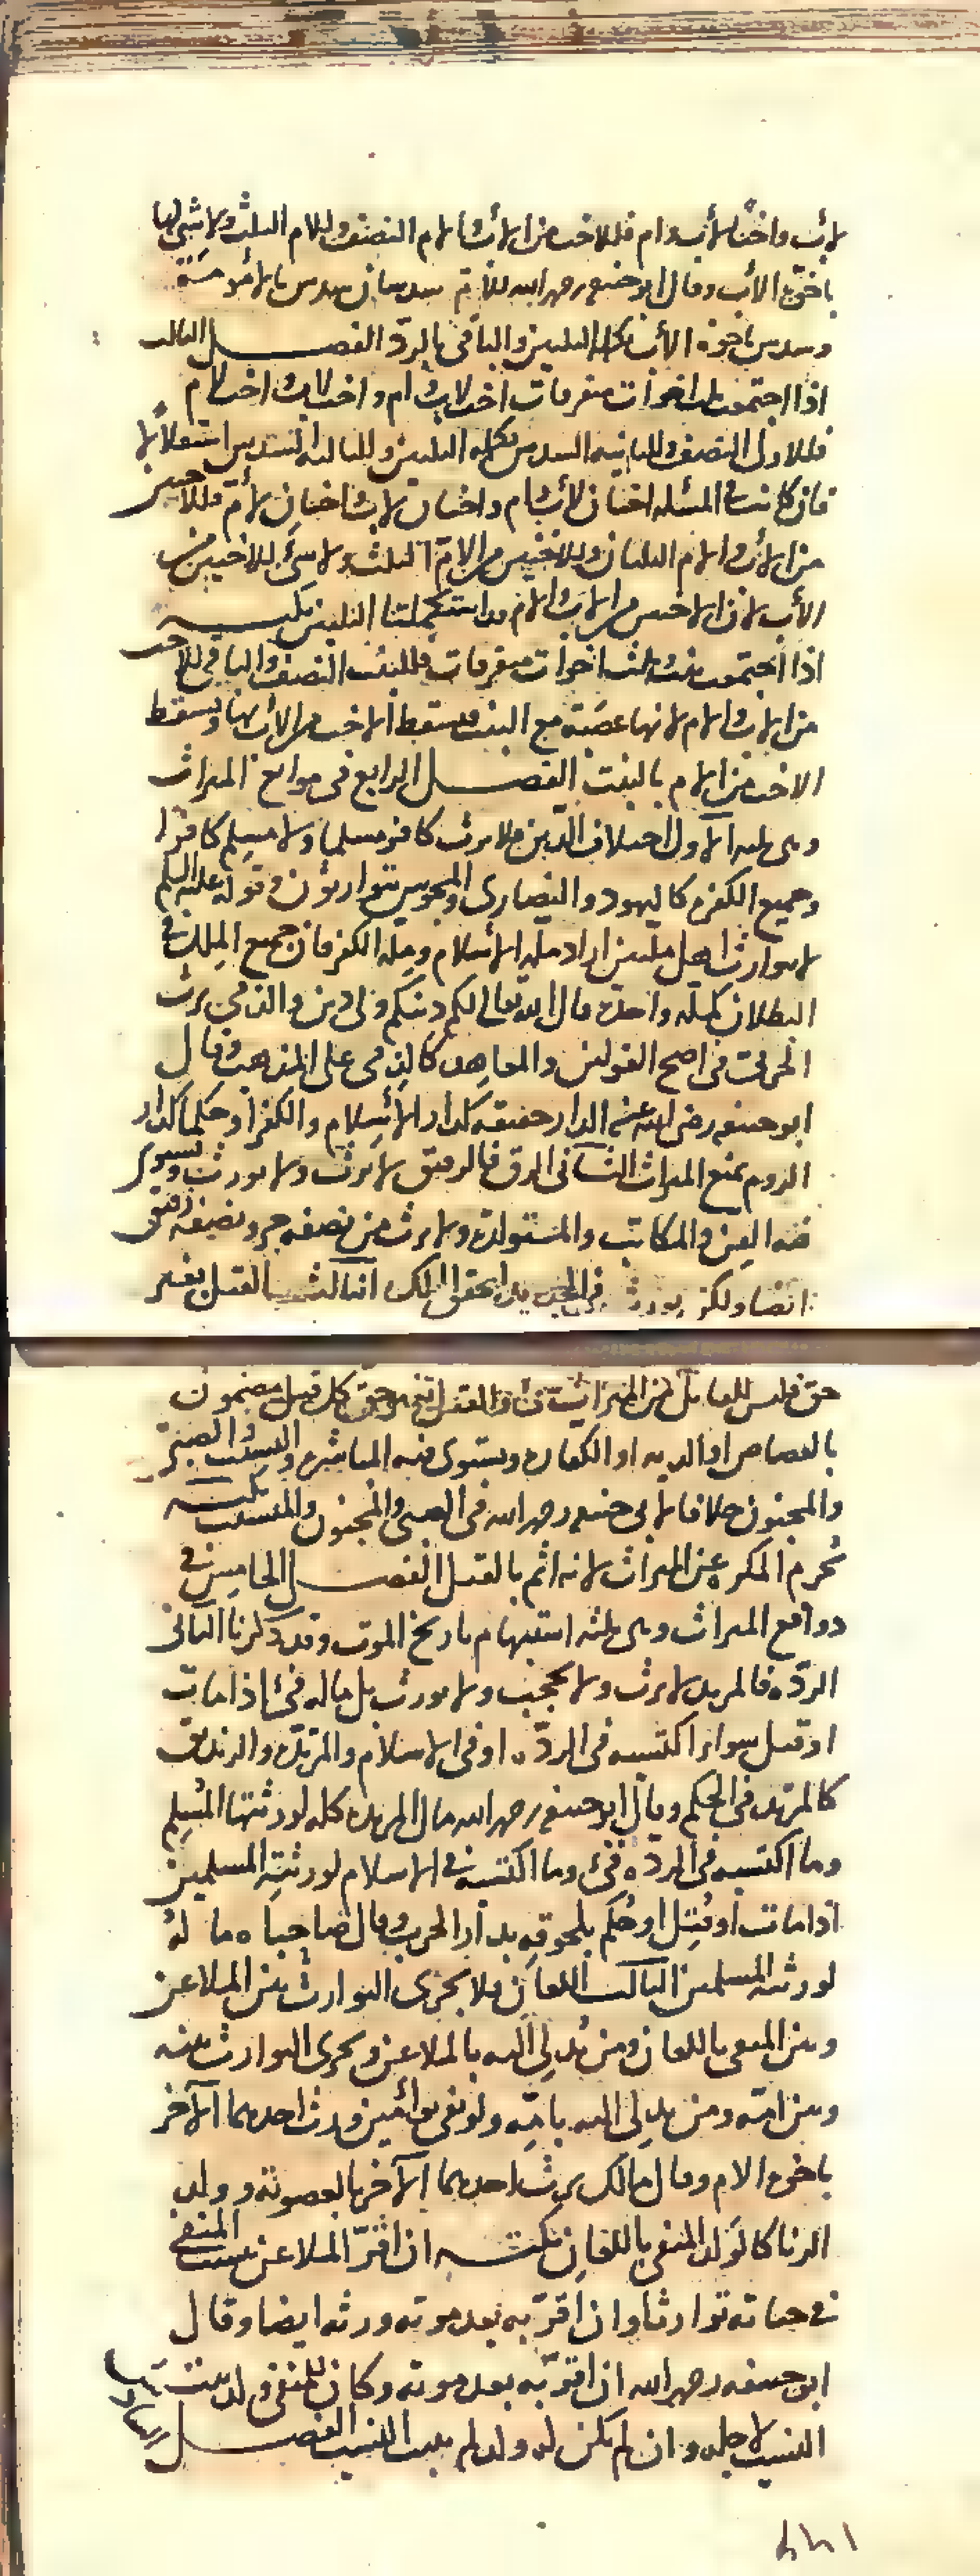 لأب واختا لأب وام فللاخت من الأب والام النصف وللام الثلث ولا شي لها
باخوة الأب وقال ابو حنيفة رحمه الله للأم سدسان سدس بالأمومة
وسدس باخوة الأب تكملة الثلثين والباقي بالرد الفصل الثالث
اذا اجتمعت ثلث اخوات متفرقات اخت لاب وام واخت لاب واخت لام
فللاولى النصف وللثانية السدس تكملة الثلثين وللثالثة السدس استقلالا
فان كانت في المسئلة اختان لأب وام واختان لاب واختان لأم فللاختين
من الأب والام الثلثان وللاختين من الام الثلث ولا شي للاختين من
الأب لان الاختين من الاب والام قد استكملتا الثلثين نكتة
اذا اجتمعت بنت وثلث اخوات متفرقات فللبنت النصف والباقي للاخت
من الاب والام لانها عصبة مع البنت ويسقط الاخت من الأب بها وتسقط
الاخت من الام بالبنت الفصل الرابع في موانع الميراث
وهي ثلثة الأول اختلاف الدين فلا يرث كافر مسلما ولا مسلم كافرا
وجميع الكفرة كاليهود والنصارى والمجوس يتوارثون وقوله عليه السلم
لا يتوارث اهل ملتين اراد ملة الاسلام وملة الكفر فان جميع الملل في
البطلان كملة واحدة قال الله تعالى لكم دينكم ولي دين والذمي يرث
الحربي في اصح القولين والمعاهد كالذمي على المذهب وقال
ابو حنيفة رضي الله عنه الدار حقيقة كدار الأسلام والكفر او حكما كدار
الروم يمنع الميراث الثاني الرق فالرقيق لا يرث ولا يورث ويستوي
فيه القن والمكاتب والمستولدة ولا يرث من نصفه حر ونصفه رقيق
ايضا ولكن يورث في الجديد لتحقق الملك الثالث القتل بغير
حق فليس للقاتل من الميراث شي والقتل بغير حق كل قتل مضمون
بالقصاص او الدية او الكفارة ويستوي فيه المباشرة والسبب والصبي
والمجنون خلافا لابي حنيفة رحمه الله في الصبي والمجنون والسبب نكتة
يحرم المكره عن الميراث لانه اثم بالقتل الفصل الخامس في
دوافع الميراث وهي ثلثة استبهام تاريخ الموت وقد ذكرنا الثاني
الردة فالمرتد لا يرث ولا يحجب ولا يورث بل ماله فيء اذا مات
او قتل سواء اكتسبه في الردة او في الاسلام والمرتدة والزنديق
كالمرتد في الحكم وقال ابو حنيفة رحمه الله مال المرتدة كله لورثتها المسلم
وما اكتسبه في الردة فيء وما اكتسبه في الاسلام لورثته المسلمين
اذا مات او قتل او حكم بلحوقه بدار الحرب وقال صاحباه ماله
لورثته المسلمين الثالث اللعان فلا يجري التوارث بين الملاعن
وبين المنفي باللعان ومن يدلي اليه بالملاعن ويجري التوارث بينه
وبين امه ومن يدلي اليه بامه ولو نفى توأمين ورث احدهما الآخر
باخوة الام وقال مالك يرث احدهما الآخر بالعصوبة وولد
الزنا كالولد المنفي باللعان نكتة ان اقر الملاعن بنسب المنفي
في حياته توارثا وان اقر به بعد موته ورثه ايضا وقال
ابو حنيفة رحمه الله ان اقر به بعد موته وكان للمنفي ولد يثبت
النسب لاجله وان لم يكن له ولد لم يثبت النسب الفصل السادس